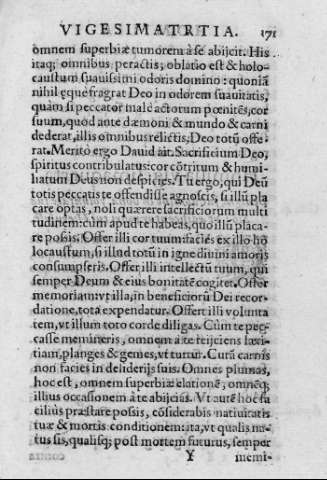 VIGESIMATRTIA. 171
omnem superbiæ tumorem à se abijcit. His
itaq; omnibus peractis; oblatio est & holo-
caustum suauissimi odoris domino: quoniã
nihil ęque fragrat Deo in odorem suauitatis,
quàm si peccator malè actorum pœnitẽs, cor
suum, quod ante dæmoni & mundo & carni
dederat, illis omnibus relictis, Deo totũ offe-
rat. Merito ergo Dauid ait. Sacrificium Deo,
spiritus contribulatus: cor cõtritum & humi-
liatum Deus non despicies. Tu ergo, qui Deũ
totis peccatis te offendisse agnoscis, si illũ pla
care optas, noli quærere sacrificiorum multi
tudinem: cùm apud te habeas, quo illũ placa-
re possis. Offer illi cor tuum: facies ex illo ho
locaustum, si illud totũ in igne diuini amoris
consumpseris. Offer illi intellectũ tuum, qui
semper Deum & eius bonitatẽ cogitet. Offer
memoriam: vt illa, in beneficiorũ Dei recor-
datione, tota expendatur. Offert illi volunta
tem, vt illum toto corde diligas. Cùm te pec-
casse memineris, omnem à te reijciens læti-
tiam, planges & gemes, vt turtur. Curã carnis
non facies in desiderijs suis. Omnes plumas,
hoc est, omnem superbiæ elationẽ, omnẽq;
illius occasionem à te abijcias. Vt autẽ hoc fa
cilius præstare possis, cõsiderabis natiuitatis
tuæ & mortis conditionem: ita, vt qualis na-
tus sis, qualisq; post mortem futurus, semper
Y memi-